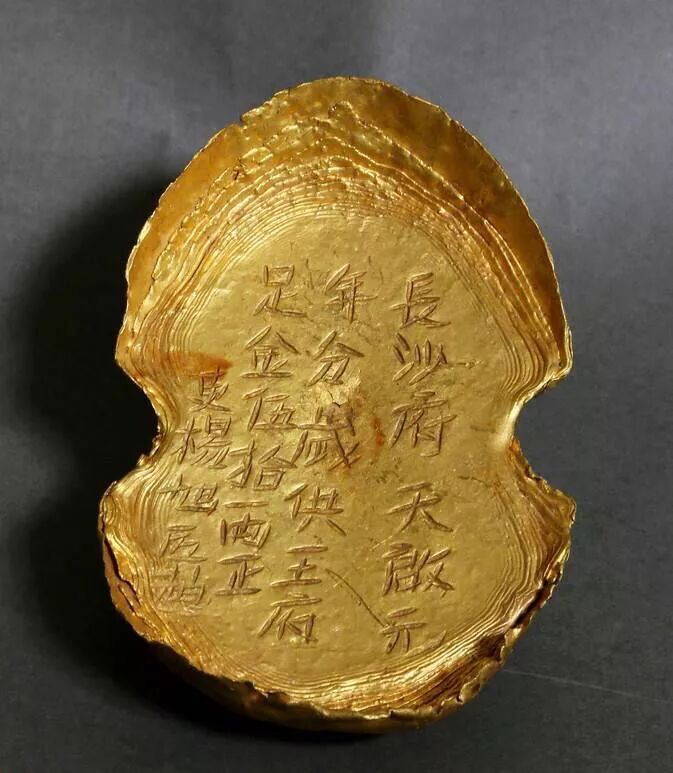 長沙府 天啟元
年分歲供王府
足金伍拾兩正
吏楊旭匠